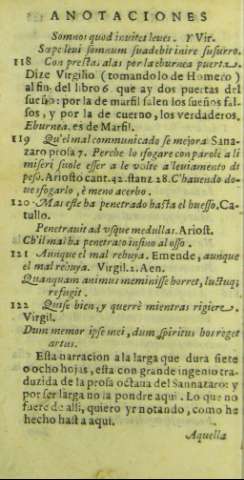 ANOTACIONES
Somnos quod inuitet leues. Y Vir.
Sæpe leui somnum suadebit inire susurro.
118 Con prestas alas por la eburnea puerta.
Dize Virgilio (tomandolo de Homero)
al fin del libro 6. que ay dos puertas del
sueño: por la de marfil salen los sueños fal-
sos, y por la de cuerno, los verdaderos.
Eburnea. es de Marfil.
119 Qu'el mal comunicado se mejora. Sana-
zaro prosa 7. Perche lo sfogare con parole a li
miseri suole esser a le volte a leuiamento di
peso. Ariosto cant. 42. stanz 28. C'hauendo do-
ue sfogarlo, è meno acerbo.
120 Mas este ba penetrado hasta el huesso. Ca-
tullo.
Penetrauit ad vsque medullas. Ariost.
Ch'il mal ha penetrato infino al osso.
121 Aunque el mal rehuya. Emende, aunque
el mal rehuya. Virgil. 2. Aen.
Quanquam animus meminisse horret, luctuq;
refugit.
122 Quise bien, y querrè mientras rigiere.
Virgil.
Dum memor ipse mei, dum spiritus hos reget
artus.
Esta narracion a la larga que dura siete
o ocho hojas, esta con grande ingenio tra-
duzida de la prosa octaua del Sannazaro: y
por ser larga no la pondre aqui. Lo que no
fuere de alli, quiero yr notando, como he
hecho hasta aqui.
Aquella